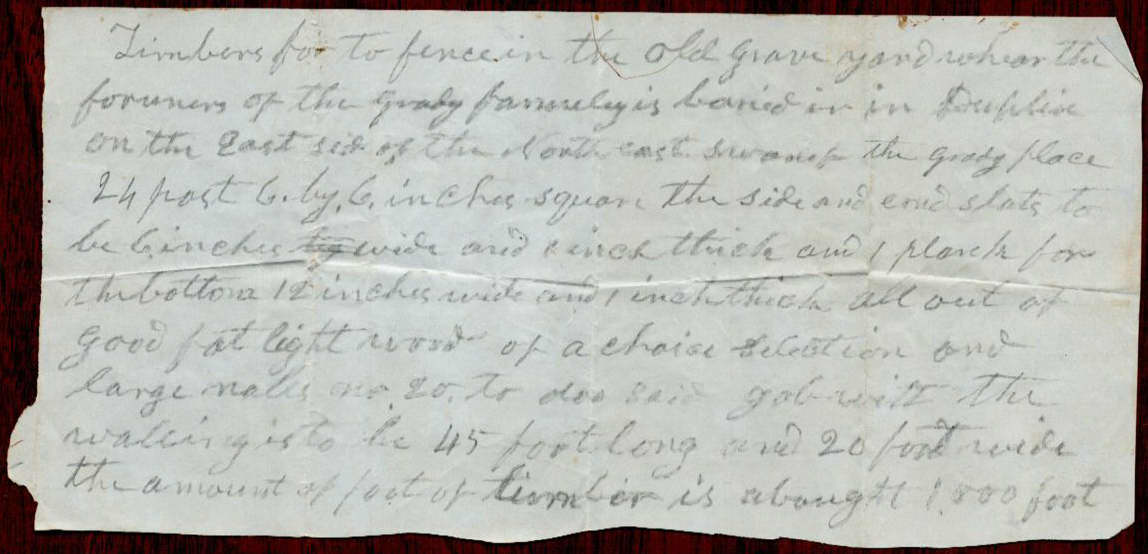 Timbers for to fence in the old grave yard whear the
foruners of the grady famuley is buried in in Duplin
on the East side of the North east swamp the grady place
24 post 6. by. 6. inches squar the side and end slats to
be 6 inches by wide and 1 inch thick and 1 planck for
the bottom 12 inches wide and 1 inch thick all out of
good fat light wood of a choise selection and
large nalls no 20. to doo said gob with the
waleing is to be 45 foot long and 20 foot wide
the amount of foot of timber is abought 1.000 foot